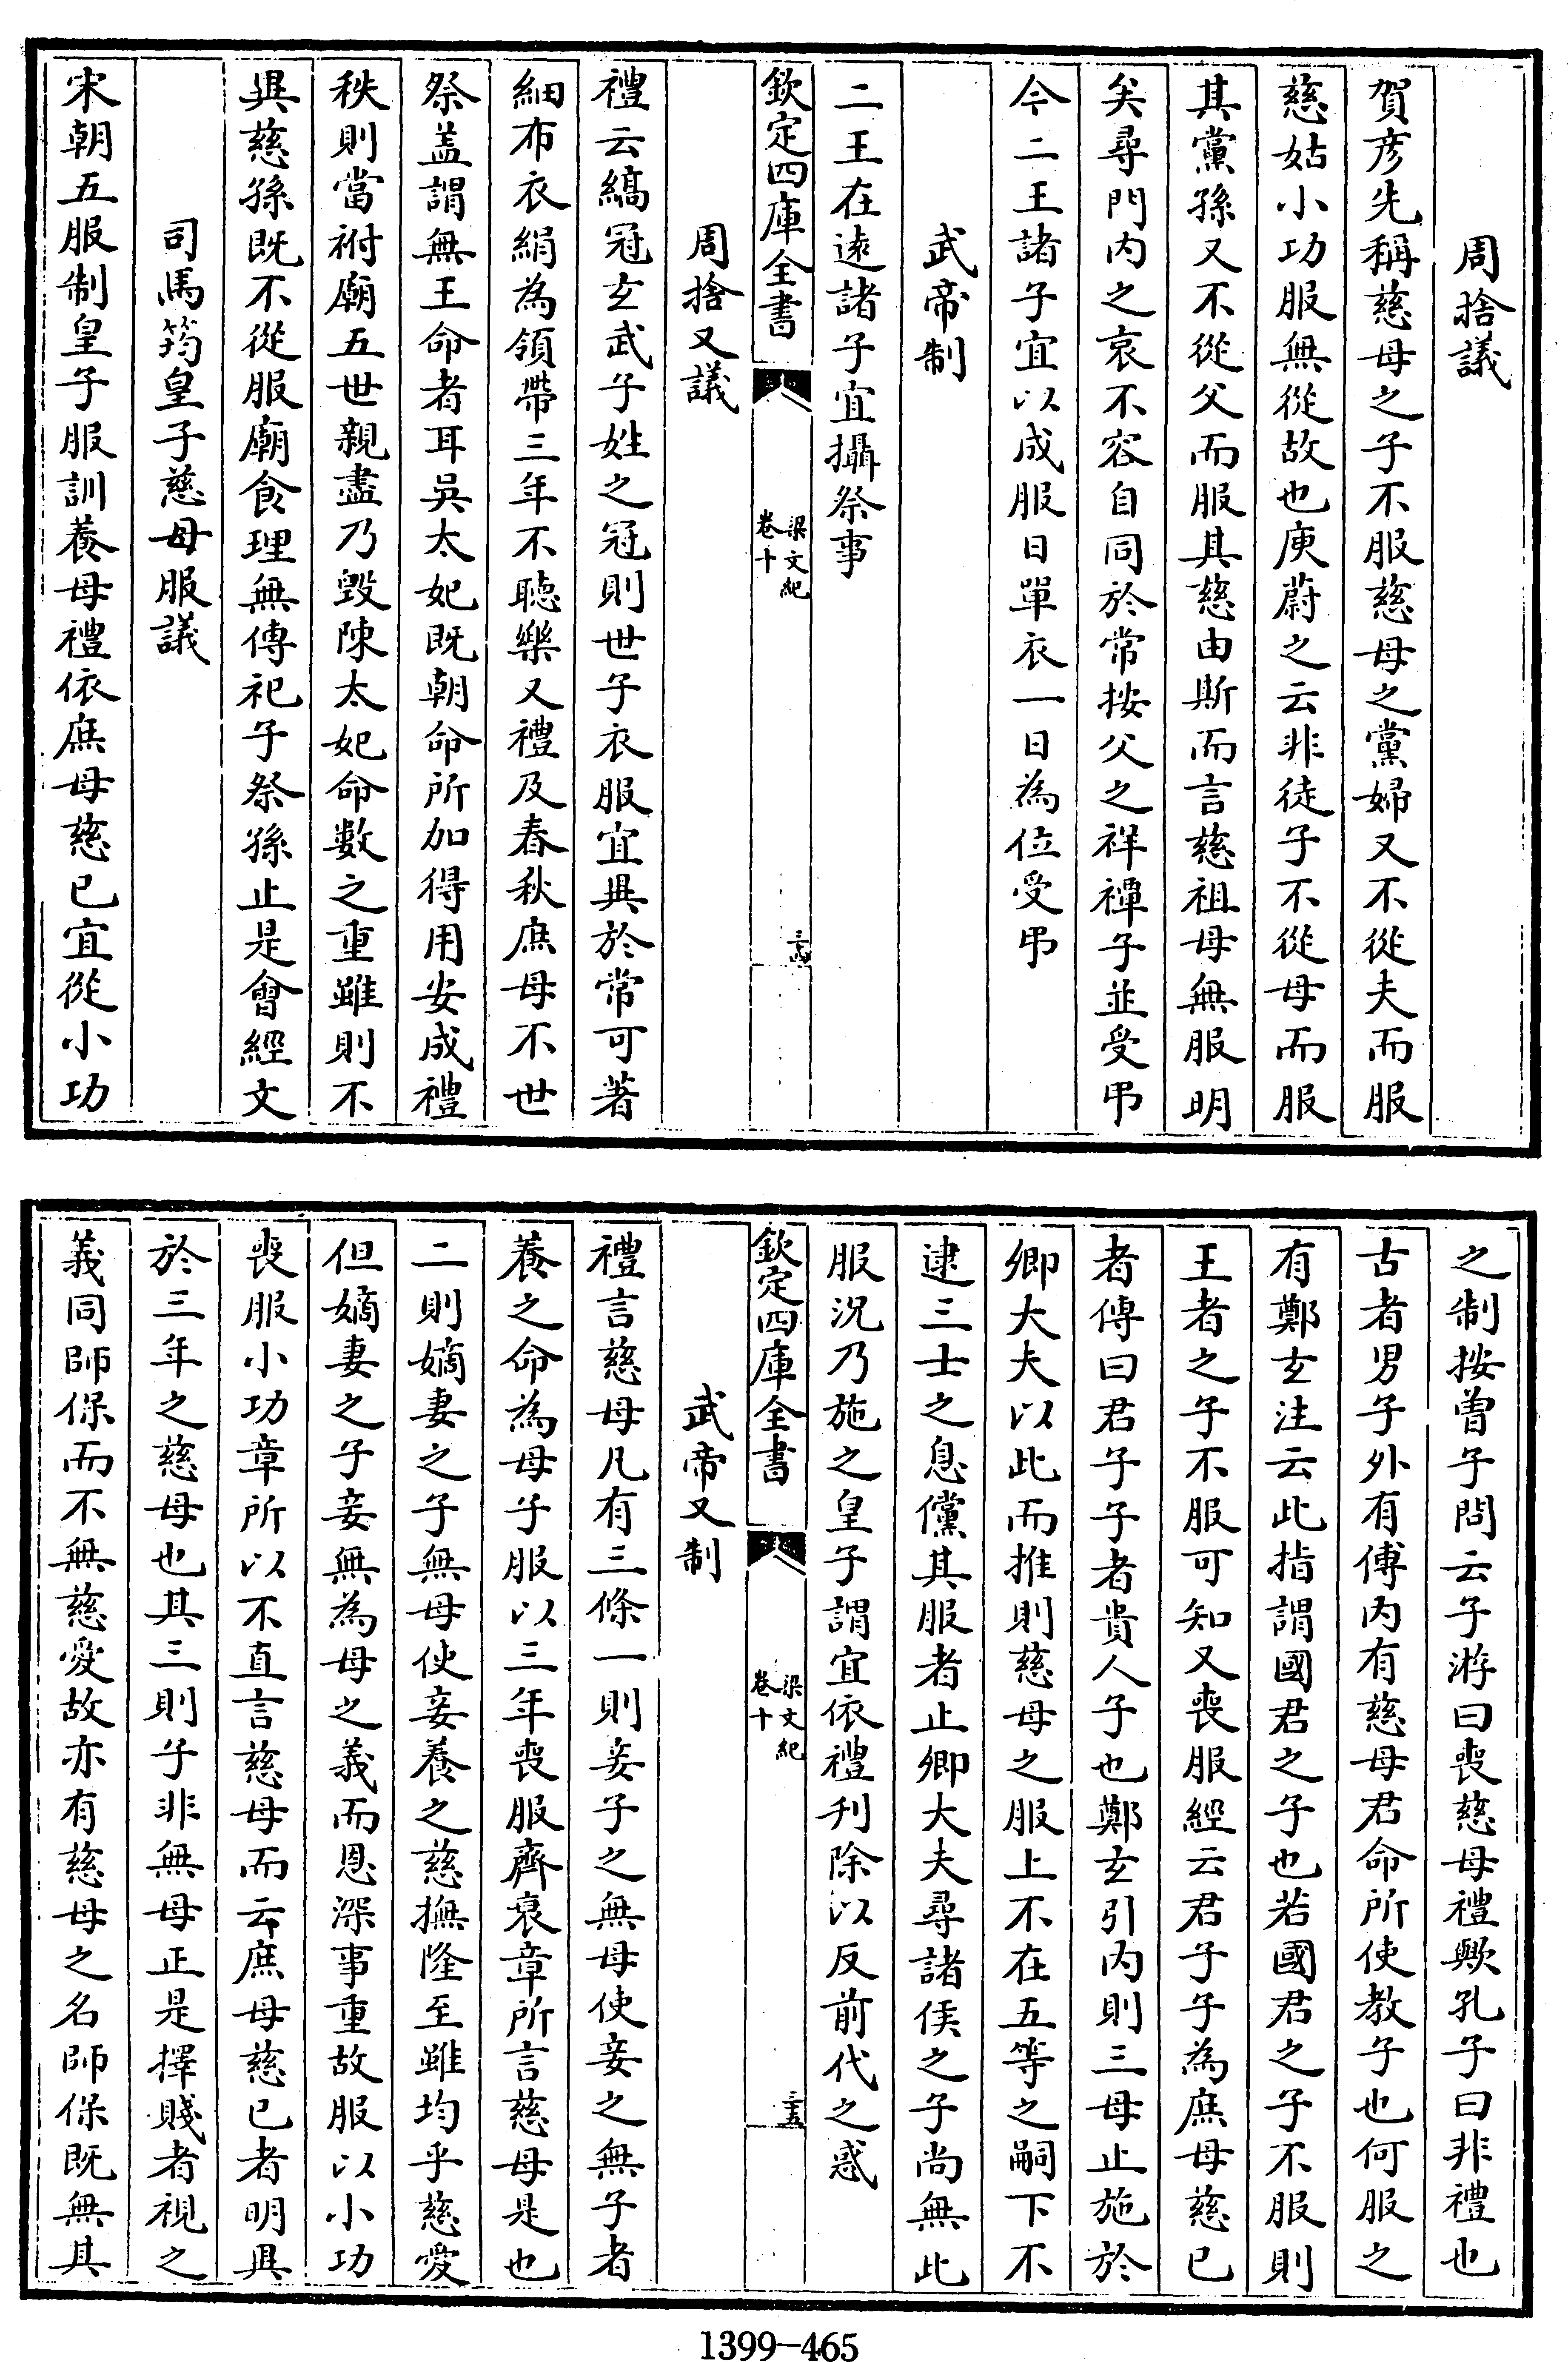 周捨議
賀彦先稱慈母之子不服慈母之黨婦又不從夫而服
慈姑小功服無從故也庾蔚之云非徒子不從母而服
其黨孫又不從父而服其慈由斯而言慈祖母無服明
矣尋門内之哀不容自同於常按父之祥禫子並受弔
今二王諸子宜以成服日單衣一日為位受弔
武帝制
二王在逺諸子宜攝祭事
欽定四庫全書
梁文紀
卷十
三四
周捨又議
禮云縞冠玄武子姓之冠則世子衣服宜與於常可著
細布衣絹為領帶三年不聽樂又禮及春秋庶母不世
祭盖謂無王命者耳吳太妃既朝命所加得用安成禮
秩則當祔廟五世親盡乃毀陳太妃命數之重雖則不
異慈孫既不從服廟食理無傳祀子祭孫止是會經文
司馬筠皇子慈母服議
宋朝五服制皇子服訓養母禮依庶母慈已宜從小功
之制按曾子問云子游曰喪慈母禮歟孔子曰非禮也
古者男子外有傅内有慈母君命所使教子也何服之
有鄭玄注云此指謂國君之子也若國君之子不服則
王者之子不服可知又喪服經云君子子為庶母慈已
者傳曰君子子者貴人子也鄭玄引内則三母止施於
卿大夫以此而推則慈母之服上不在五等之嗣下不
逮三士之息儻其服者止卿大夫尋諸侯之子尚無此
服況乃施之皇子謂宜依禮刋除以反前代之惑
欽定四庫全書
梁文紀
卷十
三五
武帝又制
禮言慈母凡有三條一則妾子之無母使妾之無子者
養之命為母子服以三年喪服齊衰章所言慈母是也
二則嫡妻之子無母使妾養之慈撫隆至雖均乎慈愛
但嫡妻之子妾無為母之義而恩深事重故服以小功
喪服小功章所以不直言慈母而云庶母慈已者明異
於三年之慈母也其三則子非無母正是擇賤者視之
義同師保而不無慈愛故亦有慈母之名師保既無其
1399-465